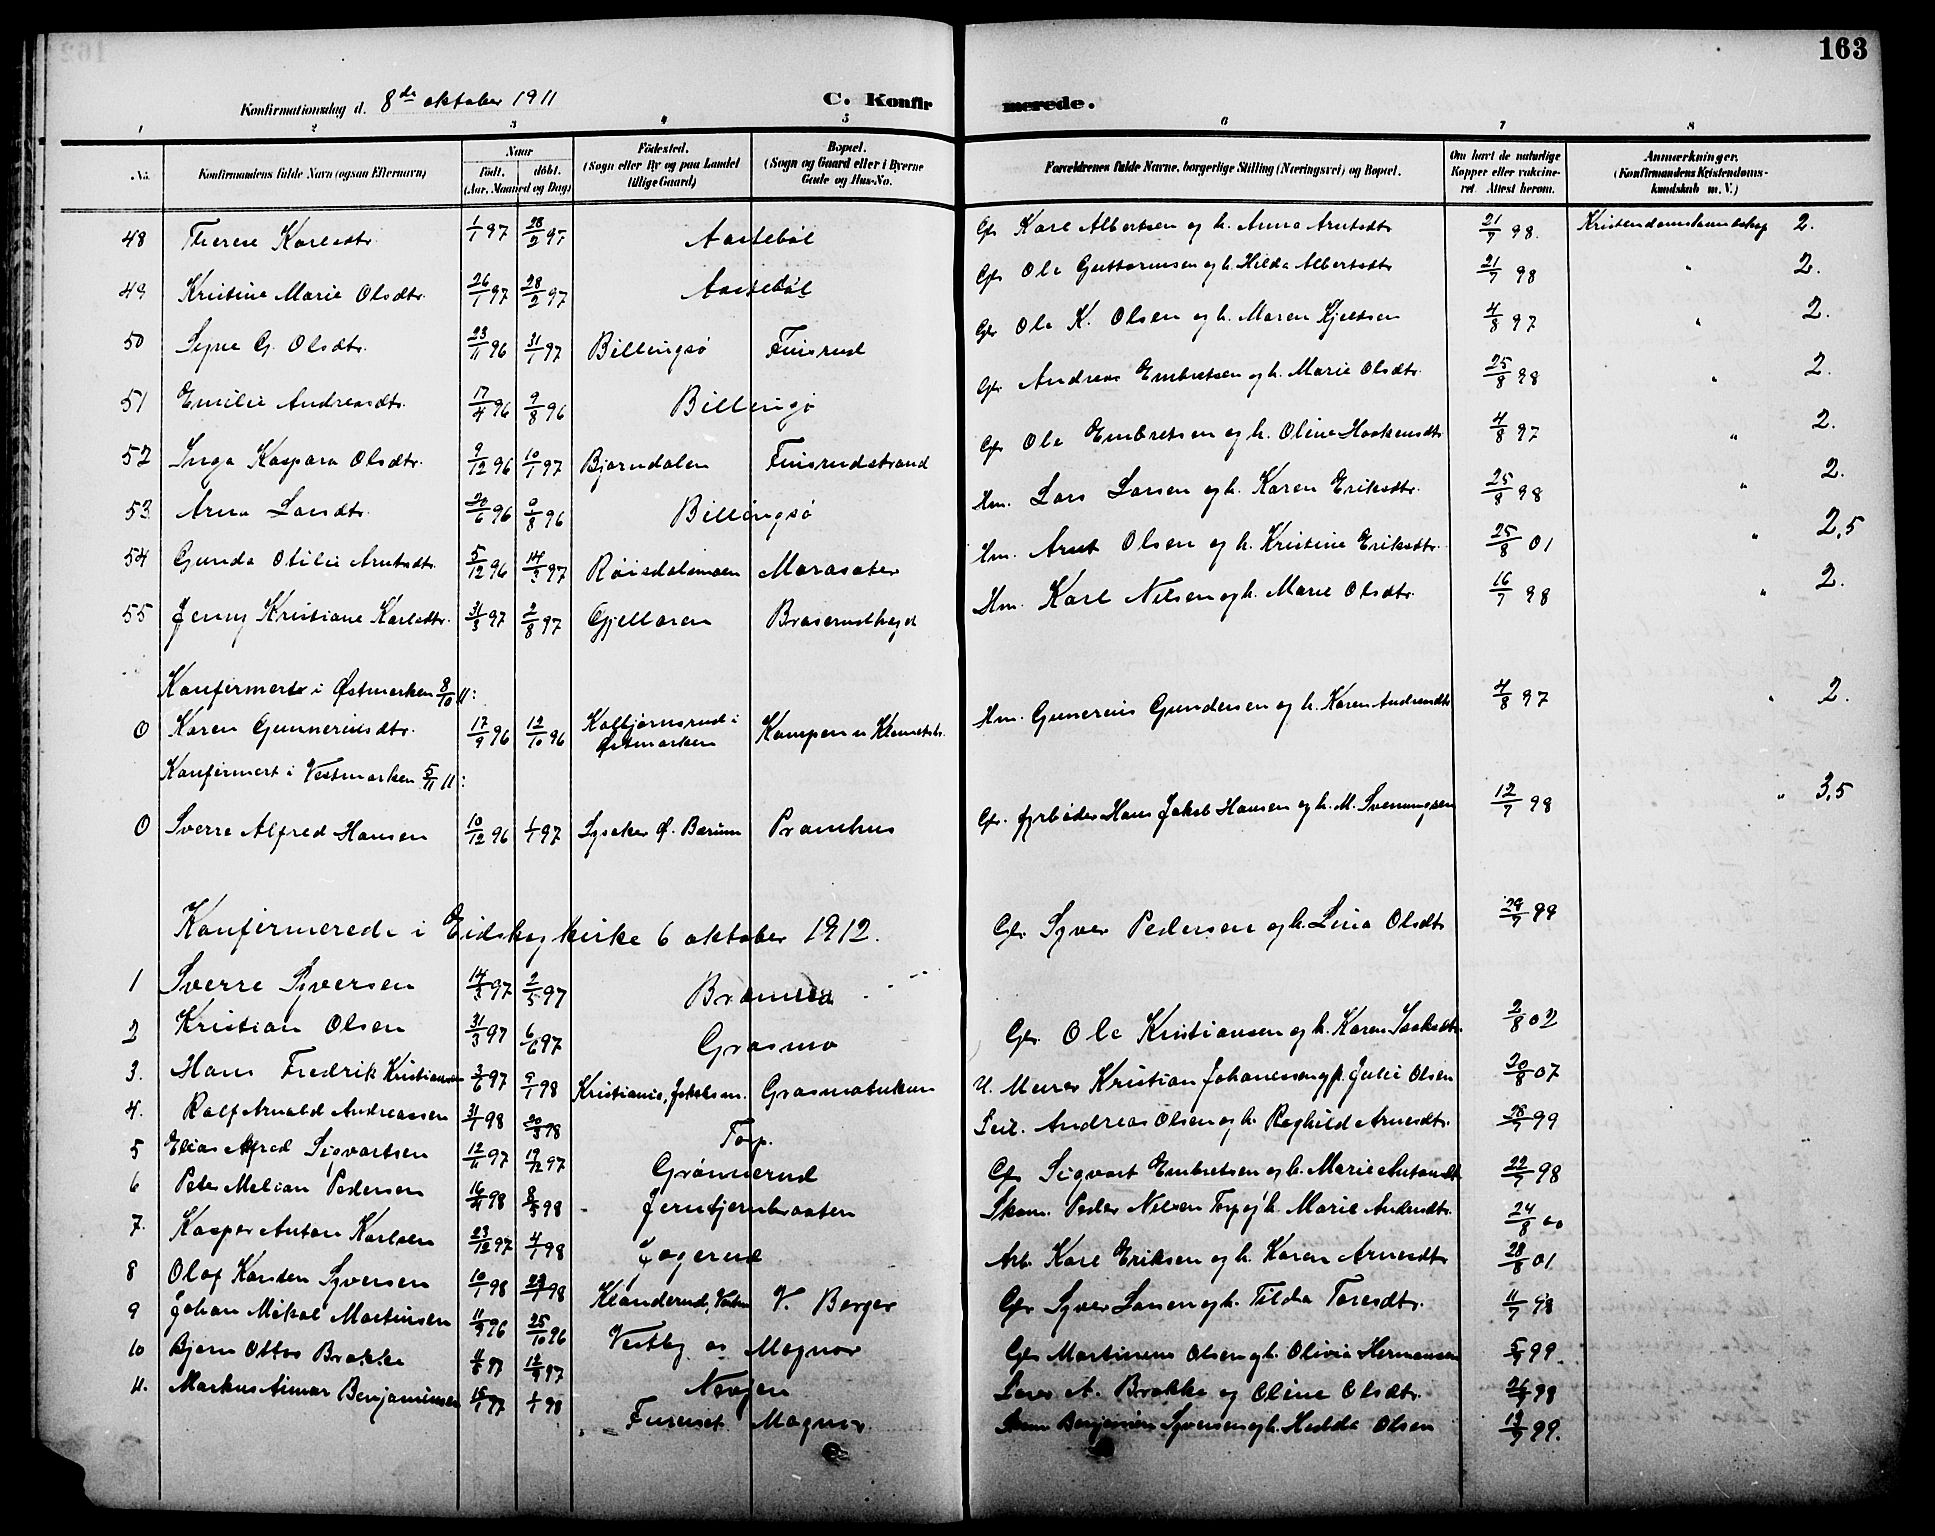 163
Konfirmationsdag d. 8de oktober 1911 C. Konfirmerede.
1 2 3 4 5 6 7 8
No. Konfirmandens fulde Navn (ogsaa Efternavn) Naar født. døbt. (Aar, Maaned og Dag) Fødested. (Sogn eller By og paa Landet tillige Gaard) Bopæl. (Sogn og Gaard eller i Byerne Gade og Hus-No. Forældrenes fulde Navne, borgerlige Stilling (Næringsvei) og Bopæl. Om havt de naturlige Kopper eller vakcineret. Attest herom. Anmærkninger. (Konfirmandens Kristendomskundskab m. V.)
48 Therese Karlsdtr. 1/1 97 28/2 97 Aastebøl Gbr. Karl Albertsen og h. Anna Arntsdtr 21/7 98. Kristendomskundskap 2.
49 Kristine Marie Olsdtr. 26/1 97 28/2 97 Aastebøl Gbr. Ole Guttormsen og h. Hilda Albertsdtr 21/7 98 " 2.
50 Signe G. Olsdtr. 23/11 96 31/1 97 Billingsø Finsrud Gbr Ole K. Olsen og h. Maren Kjeldsen 4/8 97 " 2.
51 Emilie Andreasdtr. 17/4 96 9/8 96 Billingsø Gbr. Andreas Embretsen og h. Marie Olsdtr. 25/8 98 " 2.
52 Inga Kaspara Olsdtr. 9/12 96 10/1 97 Bjørndalen Finsrudstrand Gbr Ole Embretsen og h. Oline Haakensdtr 4/8 97 " 2.
53 Anna Larsdtr. 20/6 96 9/8 96 Billingsø Hm. Lars Larsen og h. Karen Eriksdtr. 25/8 98 " 2.
54 Gunda Otilie Arntsdtr. 5/12 96 14/3 97 Røisdalsmoen Morasæter Hm. Arnt Olsen og h. Kristine Eriksdtr. 25/8 01 " 2,5
55 Jenny Kristiane Karlsdtr. 31/3 97 2/8 97 Gjellaren Braserudhøgd Hm. Karl Nilsen og h. Marie Olsdtr. 16/7 98 " 2.
Konfirmerte i Østmarken 8/10 11:
0 Karen Gunneriusdtr. 17/9 96 12/10 96 Kolbjørnsrud i Østmarken Kampen u Klanetsb. Hm. Gunerius Gundersen og h. Karen Andreasdtr 4/8 97 " 2.
Konfirmert i Vestmarken 5/11 11:
0 Sverre Alfred Hansen 10/12 96 1/1 97 Lysaker Ø. Bærum Pramhus Gbr. fyrbøder Hans Jakob Hansen og h. M. Svenningsen 12/7 98 " 3,5
Konfirmerede i Eidskog kirke 6 oktober 1912.
1 Sverre Syversen 14/3 97 2/5 97 Gbr. Syver Pedersen og h. Lina Olsdtr 29/7 99
2 Kristian Olsen 31/3 97 6/6 97 Grasmo Gbr. Ole Kristiansen og h. Karen Isaksdtr. 2/8 02
3. Hans Fredrik Kristiansen 3/6 97 9/1 98 Kristiania, Jakobs m. Grasmotuken U. Murer Kristian Johansen og p. Julie Olsen 30/8 07
4. Ralf Arnold Andreassen 31/1 98 20/3 98 Torp. Andreas Olsen og h. Raghild Arnesdtr. 28/7 99
5 Elias Alfred Sigvartsen 12/11 97 19/12 97 Grønnerud Gbr Sigvart Embretsen og h. Marie Antonsdtr 22/7 98
6 Peter Melian Pedersen 16/4 98 8/5 98 Jerntjernbraaten Skom. Peder Nilsen Torp og h. Marie Andersdtr. 24/8 00
7. Kasper Anton Karlsen 23/12 97 4/1 98 Jogerud Arb. Karl Eriksen og h. Karen Arnesdtr 28/8 01
8 Olaf Karsten Syversen 10/1 98 98 Klanderud, V. Berger Gbr Syver Larsen og h. Tilda Toresdtr. 11/7 98
9 Johan Mikal Martinsen 11/9 96 25/10 96 Vestby as Magnor Gbr Martinius Olsen og h. Olivia Hermansen 5/7 99
10 Bjarn Ottos Brakke 11/8 97 12/9 97 Lars A. Brakke og Oline Olsdtr. 98
11. Markus Aimar Benjaminsen 97 1/1 98 Furuset Magnor Benjamin Syversen og h. Hedda Olsen 19/7 99.